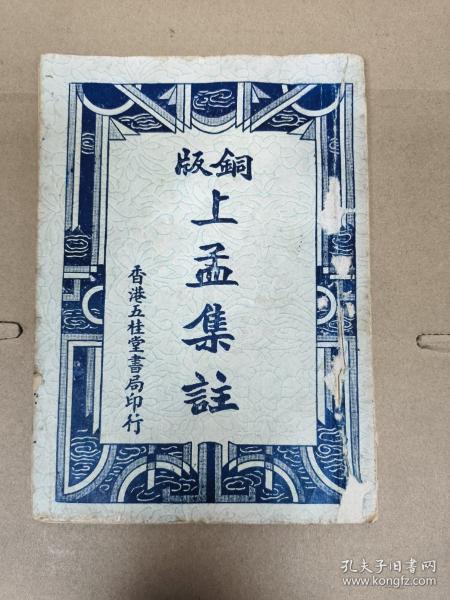 銅版
上孟集註
香港五桂堂書局印行
孔夫子旧书网
www.kongfz.com